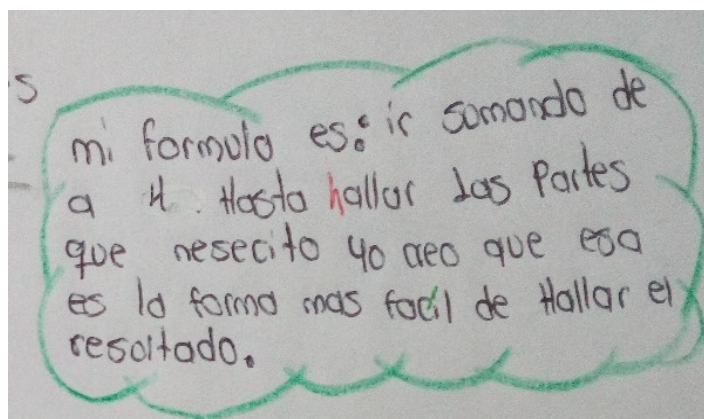 s
mi formula es: ir somando de
a 4. Hasta hallar las Partes
que nesecito yo creo que esa
es la forma mas facil de Hallar el
resoltado.